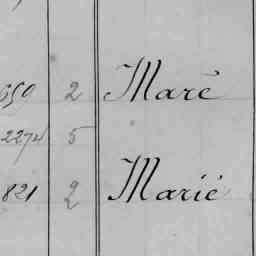 659 2 Maré
2274 5
821 2 Marié